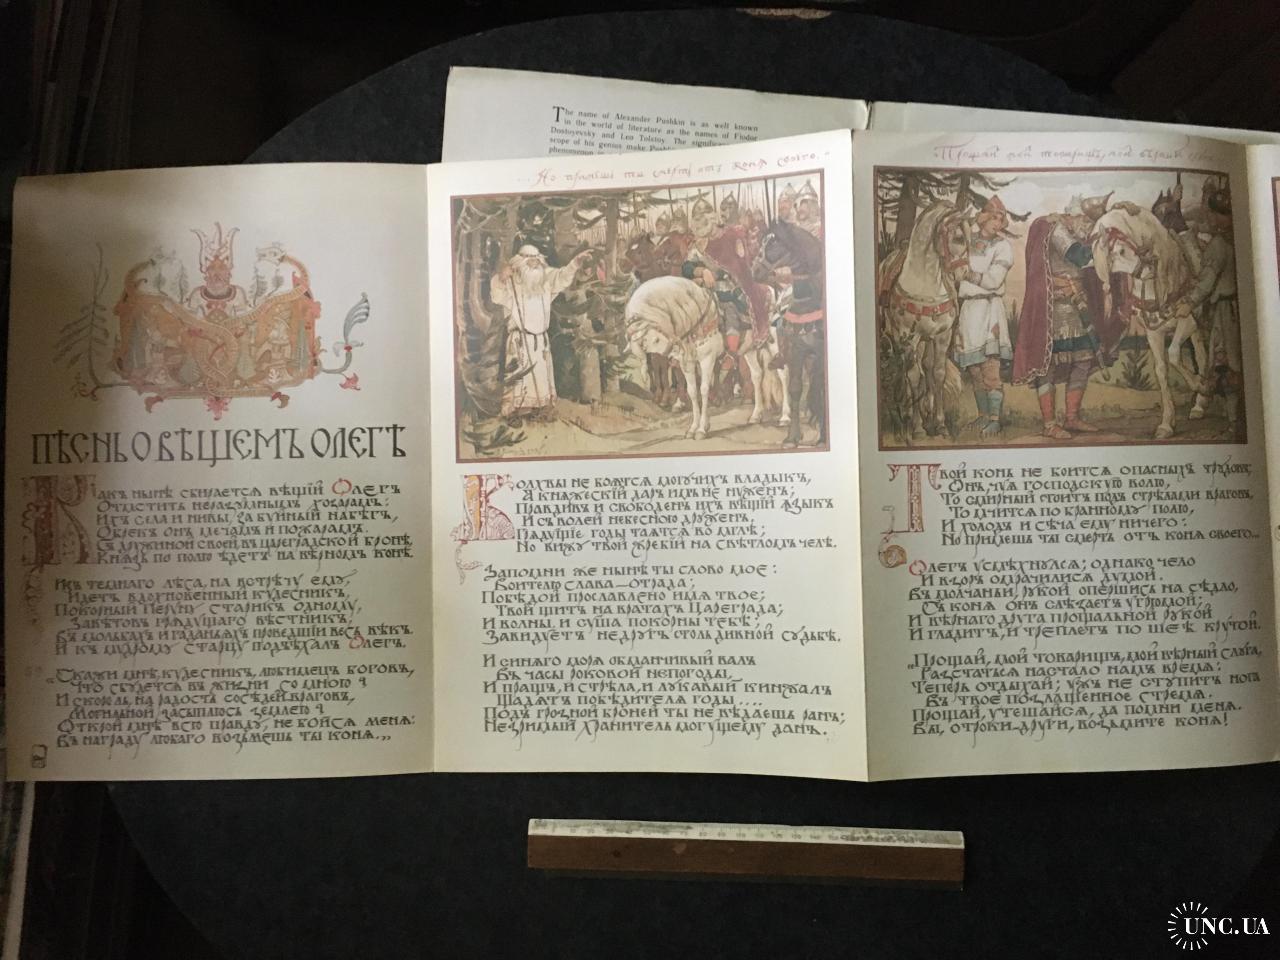 The name of Alexander Pushkin is as well known
in the world of literature as the names of Fiodor
Dostoyevsky and Leo Tolstoy. The
scope of his genius make
phenomenon
ПѢСНЬ О ВѢЩЕМЪ ОЛЕГѢ
Какъ нынѣ сбирается вѣщій Олегъ
Отмстить неразумнымъ хозарамъ:
Ихъ села и нивы, за буйный набѣгъ,
Обрекъ онъ мечамъ и пожарамъ.
Съ дружиной своей, въ цареградской бронѣ,
Князь по полю ѣдетъ на вѣрномъ конѣ.
Изъ темнаго лѣса, на встрѣчу ему,
Идетъ вдохновенный кудесникъ,
Покорный Перуну старикъ одному,
Завѣтовъ грядущаго вѣстникъ,
Въ мольбахъ и гаданьяхъ проведшій весь вѣкъ.
И къ мудрому старцу подъѣхалъ Олегъ.
"Скажи мнѣ, кудесникъ, любимецъ боговъ,
Что сбудется въ жизни со мною?
И скоро ль, на радость сосѣдей-враговъ,
Могильной засыплюсь землею?
Открой мнѣ всю правду, не бойся меня:
Въ награду любаго возьмешь ты коня.„
...Но примешь ты смерть отъ коня своего."
Волхвы не боятся могучихъ владыкъ,
А княжескій даръ имъ не нуженъ;
Правдивъ и свободенъ ихъ вѣщій языкъ
И съ волей небесною друженъ.
Грядущіе годы таятся во мглѣ;
Но вижу твой жребій на свѣтломъ челѣ.
Запомни же нынѣ ты слово мое:
Воителю слава—отрада;
Побѣдой прославлено имя твое;
Твой щитъ на вратахъ Цареграда;
И волны, и суша покорны тебѣ;
Завидуетъ недругъ столь дивной судьбѣ.
И синяго моря обманчивый валъ
Въ часы роковой непогоды,
И пращъ, и стрѣла, и лукавый кинжалъ
Щадятъ побѣдителя годы....
Подъ грозной броней ты не вѣдаешь ранъ;
Незримый хранитель могущему данъ.
"Прощай мой товарищъ, мой вѣрный
Твой конь не боится опасныхъ трудовъ;
Онъ, чуя господскую волю,
То смирный стоитъ подъ стрѣлами враговъ,
То мчится по бранному полю,
И холодъ и сѣча ему ничего:
Но примешь ты смерть отъ коня своего...
Олегъ усмѣхнулся; однако чело
И взоръ омрачилися думой.
Въ молчаньи, рукой опершись на сѣдло,
Съ коня онъ слѣзаетъ угрюмой;
И вѣрнаго друга прощальной рукой
И гладитъ, и треплетъ по шеѣ крутой.
"Прощай, мой товарищъ, мой вѣрный слуга,
Разстаться настало намъ время:
Теперь отдыхай; ужъ не ступитъ нога
Въ твое позлащенное стремя.
Прощай, утешайся, да помни меня.
Вы, отроки-други, возьмите коня!
UNC.UA